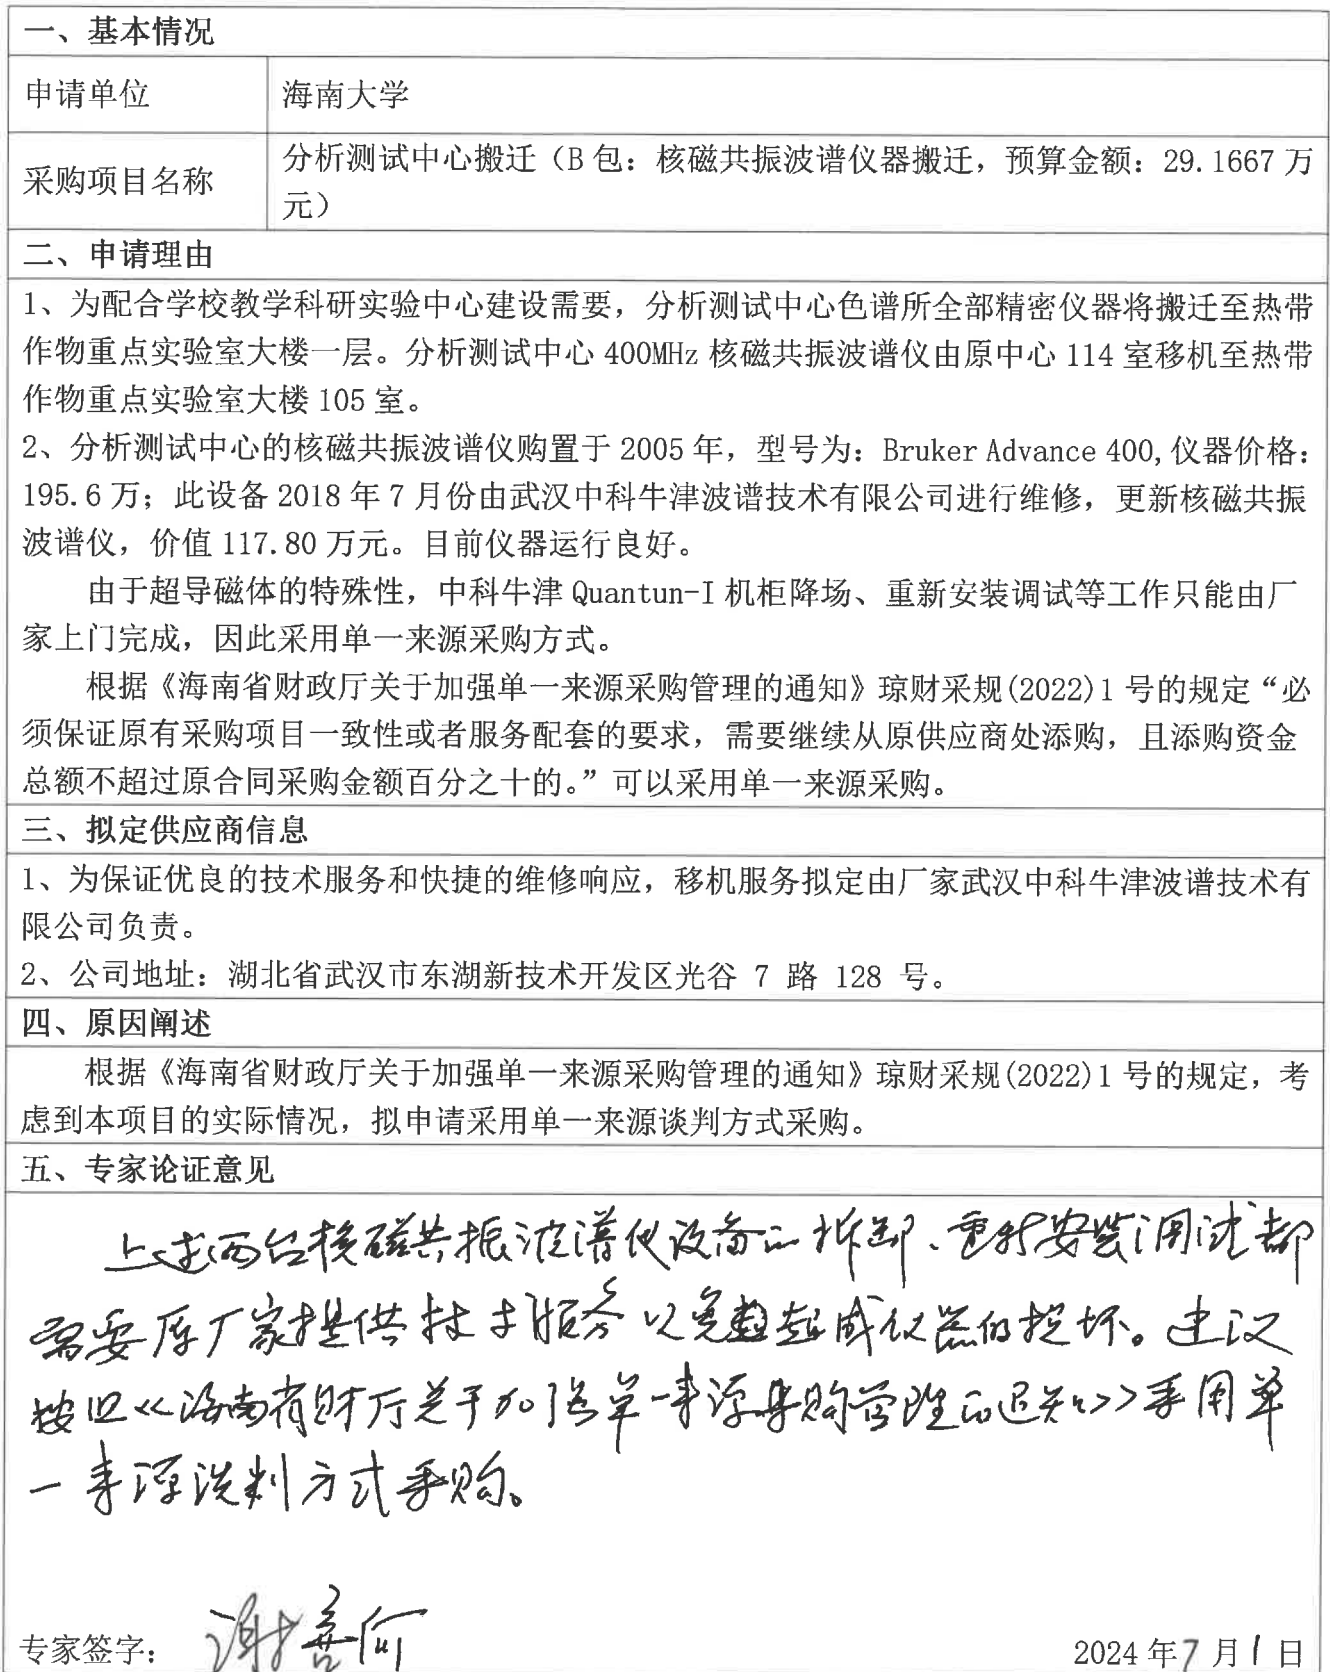 一、基本情况
申请单位
海南大学
采购项目名称
分析测试中心搬迁（B包：核磁共振波谱仪器搬迁，预算金额：29.1667万
元）
二、申请理由
1、为配合学校教学科研实验中心建设需要，分析测试中心色谱所全部精密仪器将搬迁至热带
作物重点实验室大楼一层。分析测试中心400MHz核磁共振波谱仪由原中心114室移机至热带
作物重点实验室大楼105室。
2、分析测试中心的核磁共振波谱仪购置于2005年，型号为：Bruker Advance 400,仪器价格：
195.6万；此设备2018年7月份由武汉中科牛津波谱技术有限公司进行维修，更新核磁共振
波谱仪，价值117.80万元。目前仪器运行良好。
由于超导磁体的特殊性，中科牛津Quantun-I机柜降场、重新安装调试等工作只能由厂
家上门完成，因此采用单一来源采购方式。
根据《海南省财政厅关于加强单一来源采购管理的通知》琼财采规(2022)1号的规定“必
须保证原有采购项目一致性或者服务配套的要求，需要继续从原供应商处添购，且添购资金
总额不超过原合同采购金额百分之十的。”可以采用单一来源采购。
三、拟定供应商信息
1、为保证优良的技术服务和快捷的维修响应，移机服务拟定由厂家武汉中科牛津波谱技术有
限公司负责。
2、公司地址：湖北省武汉市东湖新技术开发区光谷 7 路 128 号。
四、原因阐述
根据《海南省财政厅关于加强单一来源采购管理的通知》琼财采规(2022)1号的规定，考
虑到本项目的实际情况，拟申请采用单一来源谈判方式采购。
五、专家论证意见
上述两台核磁共振波谱仪设备的拆卸、重新安装调试都
需要原厂家提供技术服务以免造成仪器的损坏。建议
按照《海南省财厅关于加强单一来源采购管理的通知》采用单
一来源谈判方式采购。
专家签字：
2024年7月1日